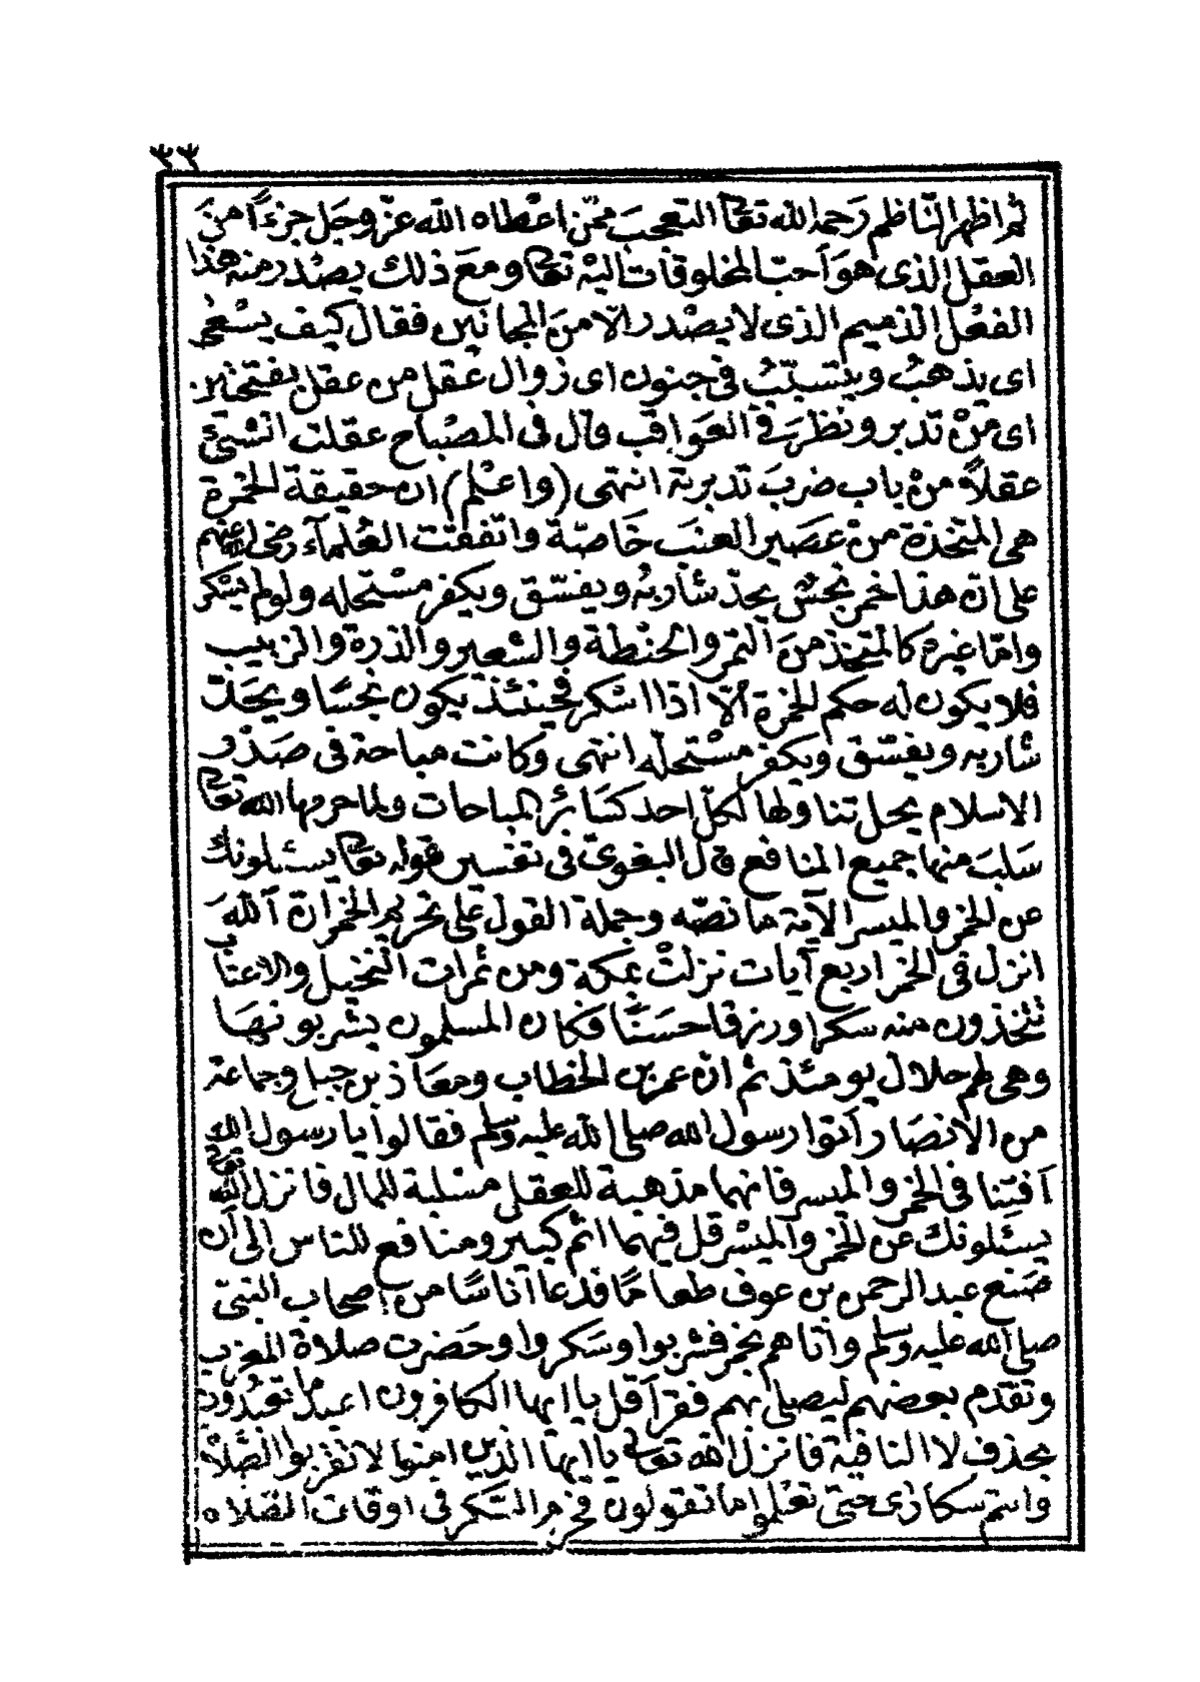 ٣٣
ثم اظهر النّاظم رَحمه الله تعالى التعجبَ ممّن اعْطاه الله عزّ وجَل جزءًا منَ
العقل الذى هوَ اَحبّ المخلوقات اليْه تعالى ومعَ ذلك يصْدر منه هذا
الفعْل الذميم الذى لا يصْدر الّا منَ المجانين فقال كيف يسْعى
اى يذهبُ ويتسبّبُ فى جنون اى زوال عَقل من عقل بفتحتين
اى منْ تدبر ونظرَ فى العوَاقب قال فى المصْباح عقلت الشئ
عقلاً منْ باب ضربَ تدبرته انتهى (واعْلم) ان حقيقة الخمْرة
هى المتخذة منْ عصَير العنَب خاصّة واتفقت العُلماء رضى الله عنهم
على انّ هذا خمر نجسٌ يحدّ شاربُه ويفسّق ويكفر مسْتحله ولو لم يسْكر
وامّا غيره كالمتخذ منَ التمر والحنْطة والشعير والذرة والزبيب
فلا يكون له حكم الخمرة الّا اذا اسْكر فحينئذ يكون نجسًا ويحَدّ
شاربه ويفسّق ويكفر مسْتحله انتهى وكانت مباحة فى صَدْر
الاسلام يحل تناولها لكل احد كسَائر المباحات ولما حرمها الله تعالى
سَلبَ منها جميع المنافع قال البغوىّ فى تفسير قوله تعالى يسئلونك
عن الخمر والميسر الآية ما نصّه وجملة القول على تحريم الخمر انّ الله
انزل فى الخمر اربع آيات نزلتْ بمكة ومن ثمرات النخيل والاعناب
تتخذون منه سكرا ورزقا حسَنًا فكان المسلمون يشربونهَا
وهى لهم حلال يومئذ ثم انّ عمر بن الخطاب ومعَاذ بن جبل وجماعة
من الانصَار اَتوا رسول الله صلى الله عليه وسلم فقالوا يا رسول الله
اَفتِنا فى الخمر والميْسر فانهما مذهبة للعقل مسْلبة للمال فانزل الله تعالى
يسئلونك عن الخمر والميْسر قل فيهما اثم كبير ومنافع للناس الى اَن
صَنع عبد الرحمن بن عوف طعامًا فدعا اناسًا من اصحاب النبىّ
صلى الله عليه وسلم واَتاهم بخمر فشربوا وسَكروا وحَضرت صلاة المغرب
وتقدم بعضهم ليصلى بهم فقراَ قل يا ايها الكافرون اعبد ما تعبُدون
بحذف لا النافية فانزل الله تعالى يا ايها الذين امنوا لا تقربوا الصَّلاة
وانتم سكارى حتى تعْلموا ما تقولون فحرم السّكر فى اوقات الصَّلاة